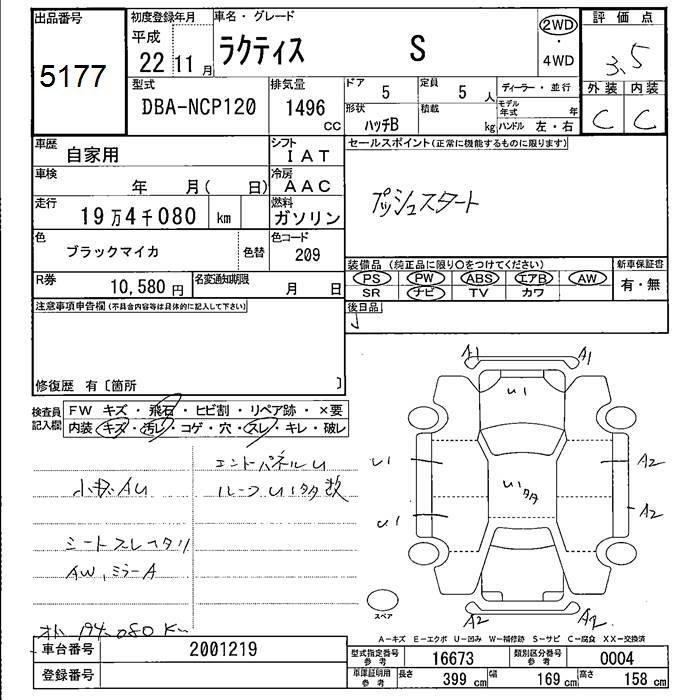 出品番号
5177
初度登録年月
平成
22 11 月
車名・グレード
ラクティス S
2WD
・
4WD
評価点
3.5
外装 内装
C C
型式
DBA-NCP120
排気量
1496
CC
ドア
5
定員
5 人
形状
ハッチB
積載
kg
ディーラー・並行
モデル年式 年
ハンドル 左・右
車歴
自家用
シフト
IAT
車検
年 月( 日)
冷房
AAC
走行
19万4千080 km
燃料
ガソリン
色
ブラックマイカ
色替
色コード
209
R券
10,580 円
名変通知期限
月 日
セールスポイント(正常に機能するものに限ります)
プッシュスタート
装備品 (純正品に限り○をつけてください)
PS PW ABS エアB AW
SR ナビ TV カワ
新車保証書
有・無
後日品
注意事項申告欄(不具合内容等は具体的に記入して下さい)
修復歴 有〔箇所 〕
検査員記入欄
FW キズ・飛石・ヒビ割・リペア跡・×要
内装 キズ・汚レ・コゲ・穴・スレ・キレ・破レ
エンドパネルU
小キズAU
ルーフU1タタ数
シートスレヘタリ
AW、ミラーA
メーター 194.080K
A1 A1
U1
U1
A2
U1タタ
U1
A2
A2 A2
スペア
A-キズ E-エクボ U-凹み W-補修跡 S-サビ C-腐食 XX-交換済
車台番号
2001219
登録番号
型式指定番号
参考
16673
類別区分番号
参考
0004
車庫証明用
参考
長さ
399 cm
幅
169 cm
高さ
158 cm